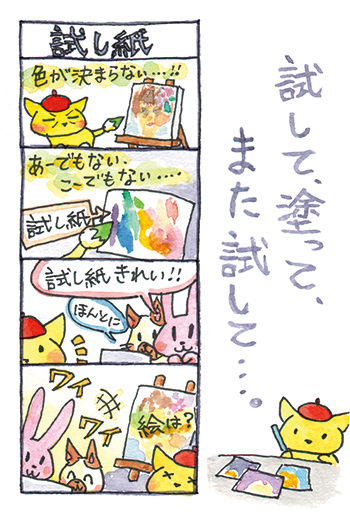 試し紙
色が決まらない…!!
あーでもない、
こーでもない‥‥
試し紙→
試し紙きれい!!
ほんとに
ワイ
ワイ
絵は?
試して、塗って、
また試して…。